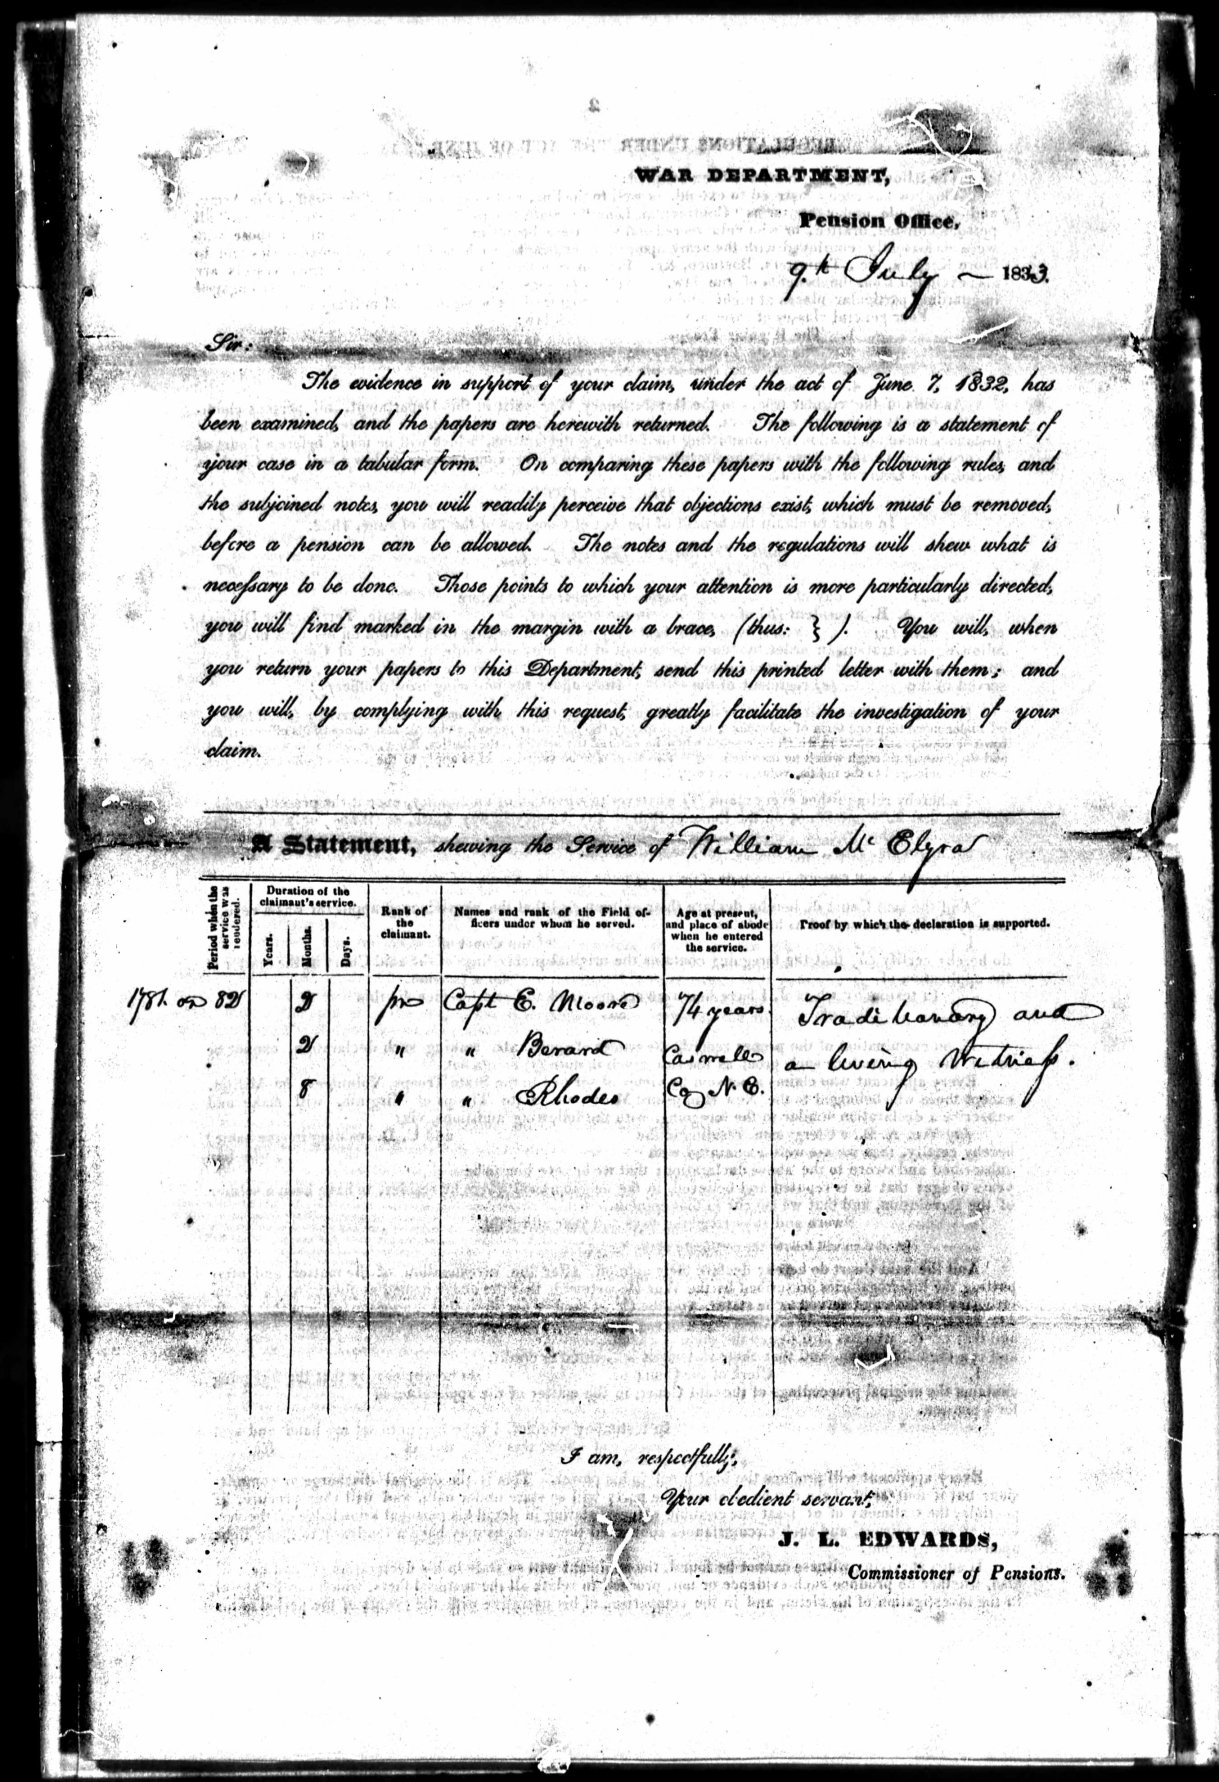 WAR DEPARTMENT,
Pension Office,
9.th July — 1833.
Sir:
The evidence in support of your claim, under the act of June 7, 1832, has
been examined, and the papers are herewith returned. The following is a statement of
your case in a tabular form. On comparing these papers with the following rules, and
the subjoined notes, you will readily perceive that objections exist, which must be removed,
before a pension can be allowed. The notes and the regulations will shew what is
necessary to be done. Those points to which your attention is more particularly directed,
you will find marked in the margin with a brace, (thus: } ). You will, when
you return your papers to this Department, send this printed letter with them; and
you will, by complying with this request, greatly facilitate the investigation of your
claim.
A Statement, shewing the Service of William Mc Elyea
Period when the service was rendered.
Duration of the claimant's service.
Years.
Months.
Days.
Rank of the claimant.
Names and rank of the Field officers under whom he served.
Age at present, and place of abode when he entered the service.
Proof by which the declaration is supported.
1781. or 82 2 pr Capt E. Moore 74 years. Traditionary and
2 " " Caswell a living Witness.
8 " " Rhodes Co N C.
I am, respectfully,
Your obedient servant,
J. L. EDWARDS,
Commissioner of Pensions.